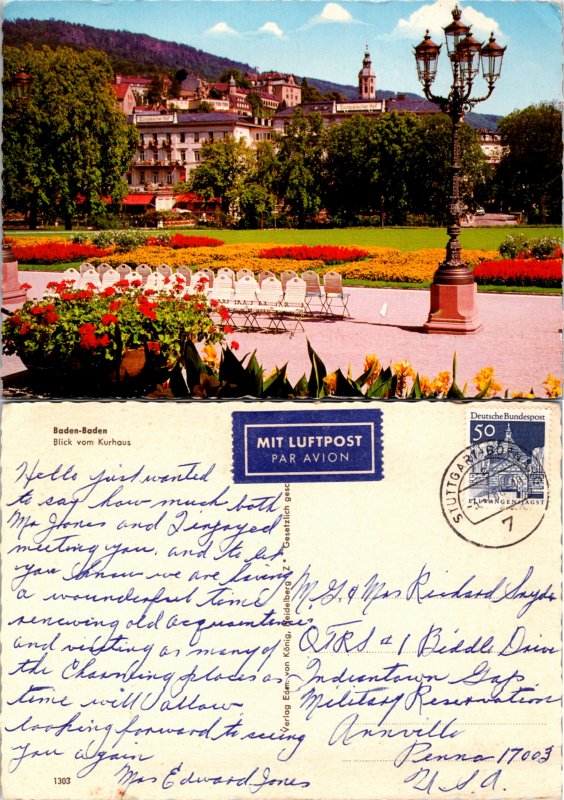 Baden-Baden
Blick vom Kurhaus
MIT LUFTPOST
PAR AVION
Deutsche Bundespost
50
ELLWANGEN/JAGST
STUTTGART
7
Hello just wanted
to say how much both
Mr Jones and I enjoyed
meeting you, and to let
you know we are having
a wounderful time
renewing old acquaintences
and visiting as many of
the Charming places as
time will allow
looking forward to seeing
you again
Mrs Edward Jones
Verlag Edm. von König, Heidelberg "Z" Gesetzlich gesc
M.G. & Mrs Richard Snyder
QTRS #1 Biddle Drive
Indiantown Gap
Military Reservation
Annville
Penna 17003
U.S.A.
1303